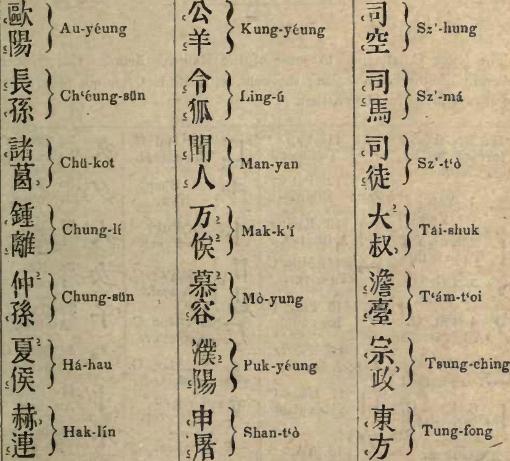 歐陽 } Au-yéung
長孫 } Ch‘éung-sün
諸葛 } Chü-kot
鍾離 } Chung-lí
仲孫 } Chung-sün
夏侯 } Há-hau
赫連 } Hak-lín
公羊 } Kung-yéung
令狐 } Ling-ú
聞人 } Man-yan
万俟 } Mak-k'í
慕容 } Mò-yung
濮陽 } Puk-yéung
申屠 } Shan-t‘ò
司空 } Sz'-hung
司馬 } Sz'-má
司徒 } Sz'-t‘ò
大叔 } Tái-shuk
澹臺 } T‘ám-t‘oi
宗政 } Tsung-ching
東方 } Tung-fong